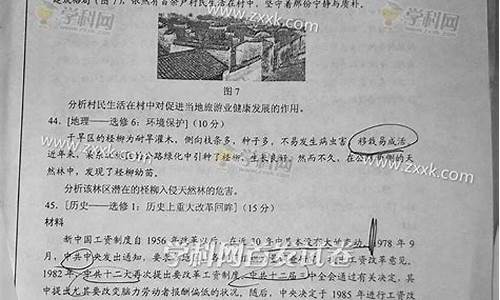 建成格局（图7），依然有百余户村民生活在村中，坚守着那份宁静与质朴。
学科网
www.zxxk.com
图7
分析村民生活在村中对促进当地旅游业健康发展的作用。
44. [地理——选修6：环境保护]（10分）
干旱区的柽柳为耐旱灌木，侧向枝条多，种子多，不易发生病虫害，移栽易成活
近年来，某农
公路绿化中引种了柽柳，生长良好。然而不久，在公路
侧的天
然林中，发现了柽柳幼苗。
分析该林区潜在的柽柳入侵天然林的危害。
45. [历史——选修1：历史上重大改革回眸]（15分）
材料
新中国工资制度自1956年改革以后，在近30年中基本没有大的变动。1978年9
月，中共中央发出通知，要
工资改革意见。
1982年，中共十二大再次提出要改革工资制度，中共十二届三中全会通过有关决定，其
中提出尤其要改变脑力劳动者报酬偏低的状况，随后，中央决定于1985年进行工资改
学科网首发试卷